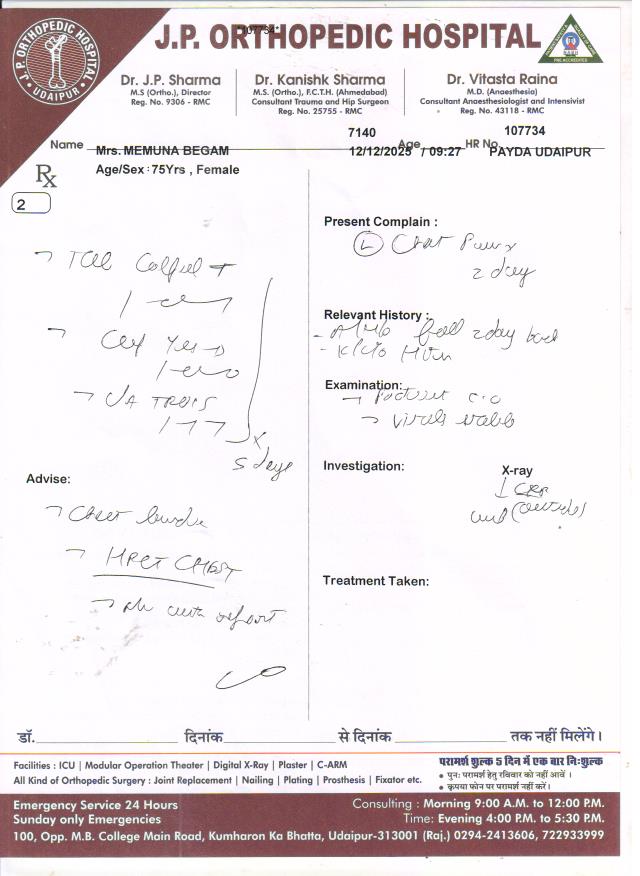 *107734*
J.P. ORTHOPEDIC HOSPITAL
J. P. ORTHOPEDIC HOSPITAL
• UDAIPUR •
NABH
PRE ACCREDITED
Dr. J.P. Sharma
M.S (Ortho.), Director
Reg. No. 9306 - RMC
Dr. Kanishk Sharma
M.S. (Ortho.), F.C.T.H. (Ahmedabad)
Consultant Trauma and Hip Surgeon
Reg. No. 25755 - RMC
Dr. Vitasta Raina
M.D. (Anaesthesia)
Consultant Anaesthesiologist and Intensivist
Reg. No. 43118 - RMC
7140 107734
Name Mrs. MEMUNA BEGAM Age 12/12/2025 / 09:27 HR No. PAYDA UDAIPUR
Rx Age/Sex : 75Yrs , Female
2
5 days
Advise:
→ Chest
→ HRCT CHEST
→ with report
Present Complain :
(L) Chest Pain
2 day
Relevant History :
- A/H/o fall 2 day back
- K/C/o HTN
Examination:
→ Vitals stable
Investigation:
X-ray
Treatment Taken:
डॉ. दिनांक से दिनांक तक नहीं मिलेंगे।
Facilities : ICU | Modular Operation Theater | Digital X-Ray | Plaster | C-ARM
All Kind of Orthopedic Surgery : Joint Replacement | Nailing | Plating | Prosthesis | Fixator etc.
परामर्श शुल्क 5 दिन में एक बार निःशुल्क
• पुनः परामर्श हेतु रविवार को नहीं आवें ।
• कृपया फोन पर परामर्श नहीं करें।
Emergency Service 24 Hours
Sunday only Emergencies
Consulting : Morning 9:00 A.M. to 12:00 P.M.
Time: Evening 4:00 P.M. to 5:30 P.M.
100, Opp. M.B. College Main Road, Kumharon Ka Bhatta, Udaipur-313001 (Raj.) 0294-2413606, 722933999